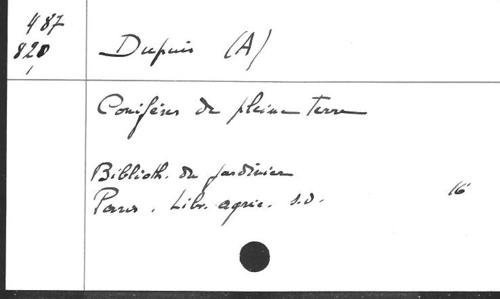 487
820 Dupuis (A)
1
Conifères de pleine terre
Biblioth. du jardinier
Paris. Libr. agric. s.d. 16